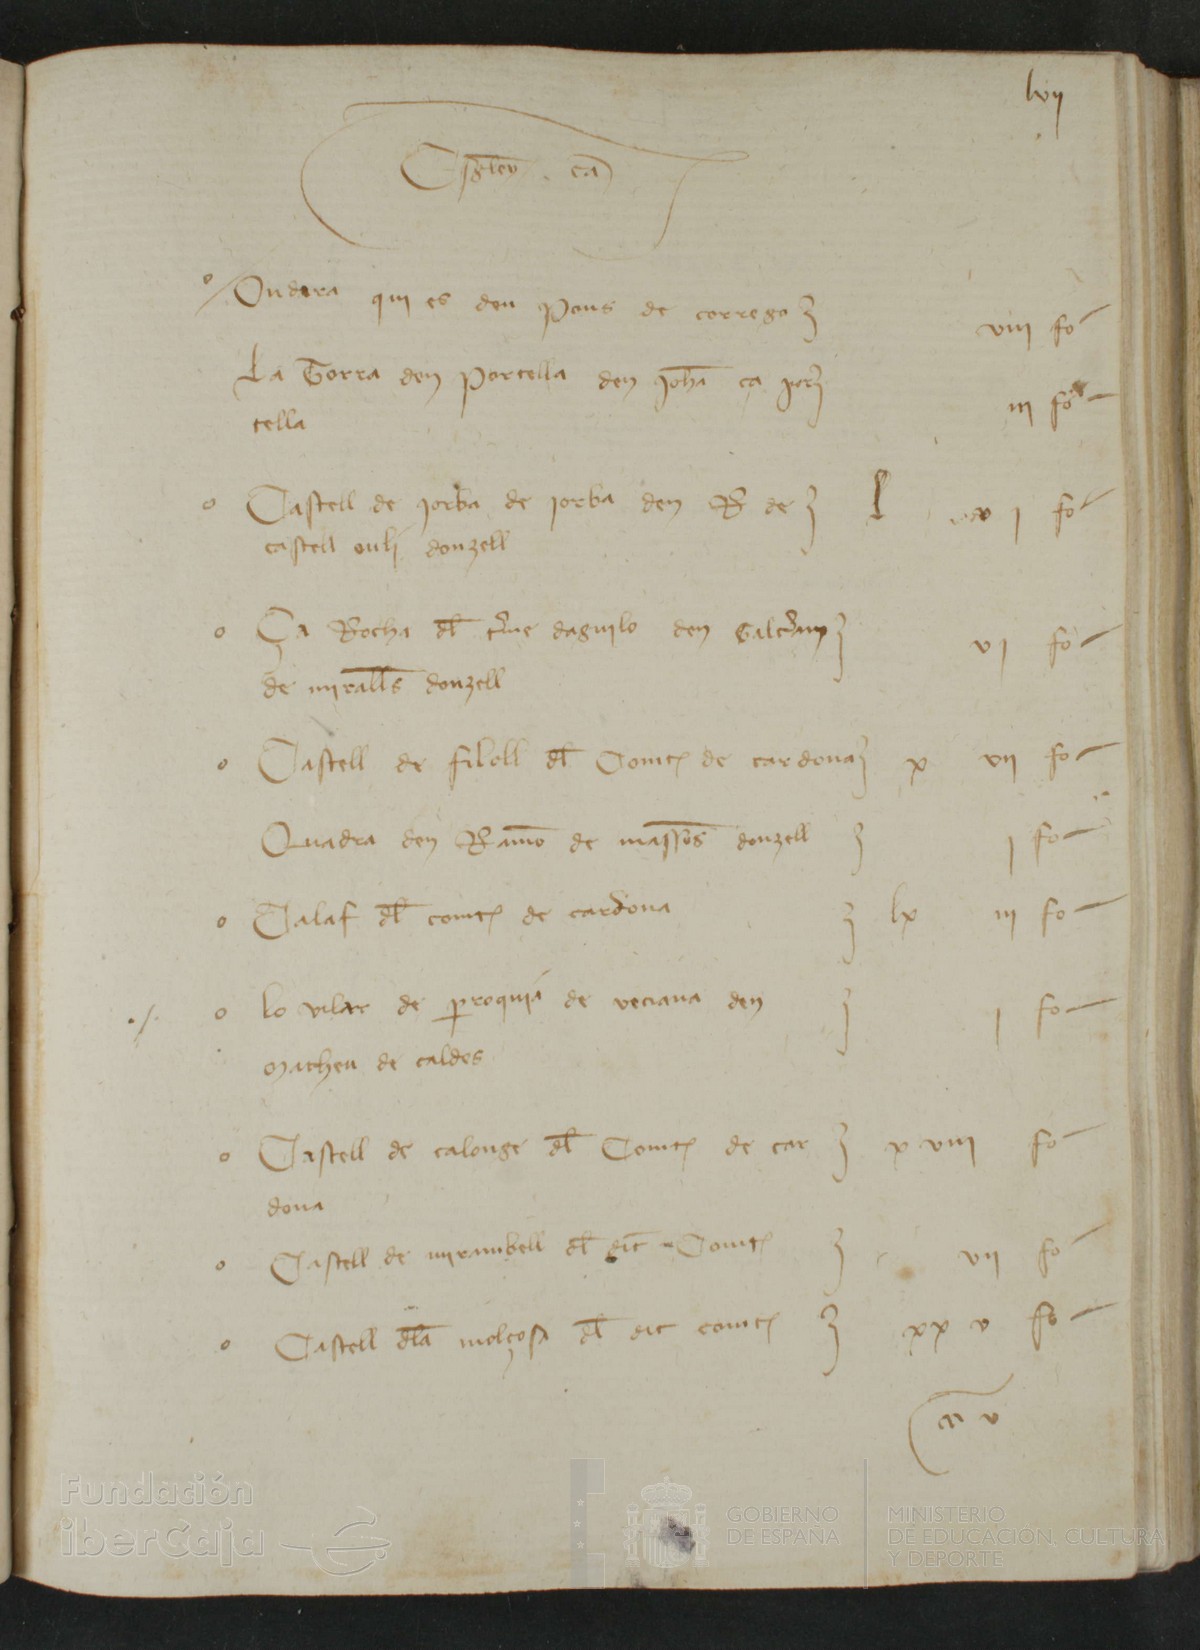 lvii
Esgleỹ . ca
Ondara qui es den Pons de correga viii fo
La Torra den Portella den Johã ca por
tella iii fo
Castell de jorba de jorba den R de l i fo
castell ouli donzell
Ça Rocha dl̃ t̃me daguilo den Galcẽm vi fo
de miralls donzell
Castell de filoll dl̃ Comt de cardona x vii fo
Quadra den Ramõ de massõs donzell i fo
Calaf dl̃ comt de cardona lx iii fo
Lo vilar de p̱roquia de veciana den i fo
Matheu de caldes
Castell de calonge dl̃ Comt de car x viii fo
dona
Castell de mirambell dl̃ dit Comt vii fo
Castell dla molçosa dl̃ dit comt xx v fo
cc v
Fundación
iberCaja
GOBIERNO
DE ESPAÑA
MINISTERIO
DE EDUCACIÓN, CULTURA
Y DEPORTE